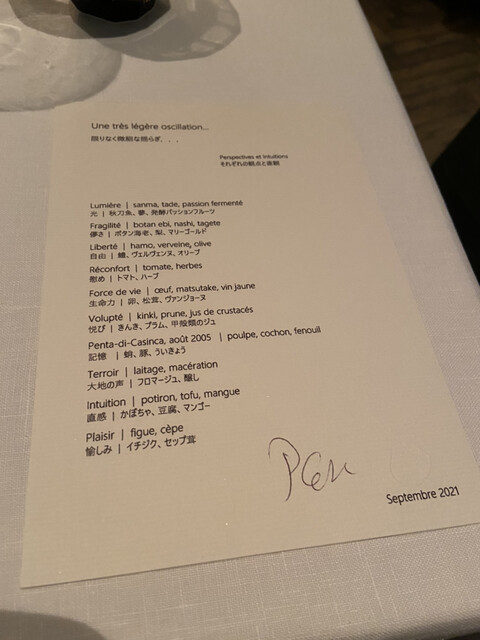 Une très légère oscillation...
限りなく微細な揺らぎ...
Perspectives et Intuitions
それぞれの観点と直観
Lumière | sanma, tade, passion fermenté
光 | 秋刀魚、蓼、発酵パッションフルーツ
Fragilité | botan ebi, nashi, tagete
儚さ | ボタン海老、梨、マリーゴールド
Liberté | hamo, verveine, olive
自由 | 鱧、ヴェルヴェンヌ、オリーブ
Réconfort | tomate, herbes
慰め | トマト、ハーブ
Force de vie | œuf, matsutake, vin jaune
生命力 | 卵、松茸、ヴァンジョーヌ
Volupté | kinki, prune, jus de crustacés
悦び | きんき、プラム、甲殻類のジュ
Penta-di-Casinca, août 2005 | poulpe, cochon, fenouil
記憶 | 蛸、豚、ういきょう
Terroir | laitage, macération
大地の声 | フロマージュ、醸し
Intuition | potiron, tofu, mangue
直感 | かぼちゃ、豆腐、マンゴー
Plaisir | figue, cèpe
愉しみ | イチジク、セップ茸
Septembre 2021